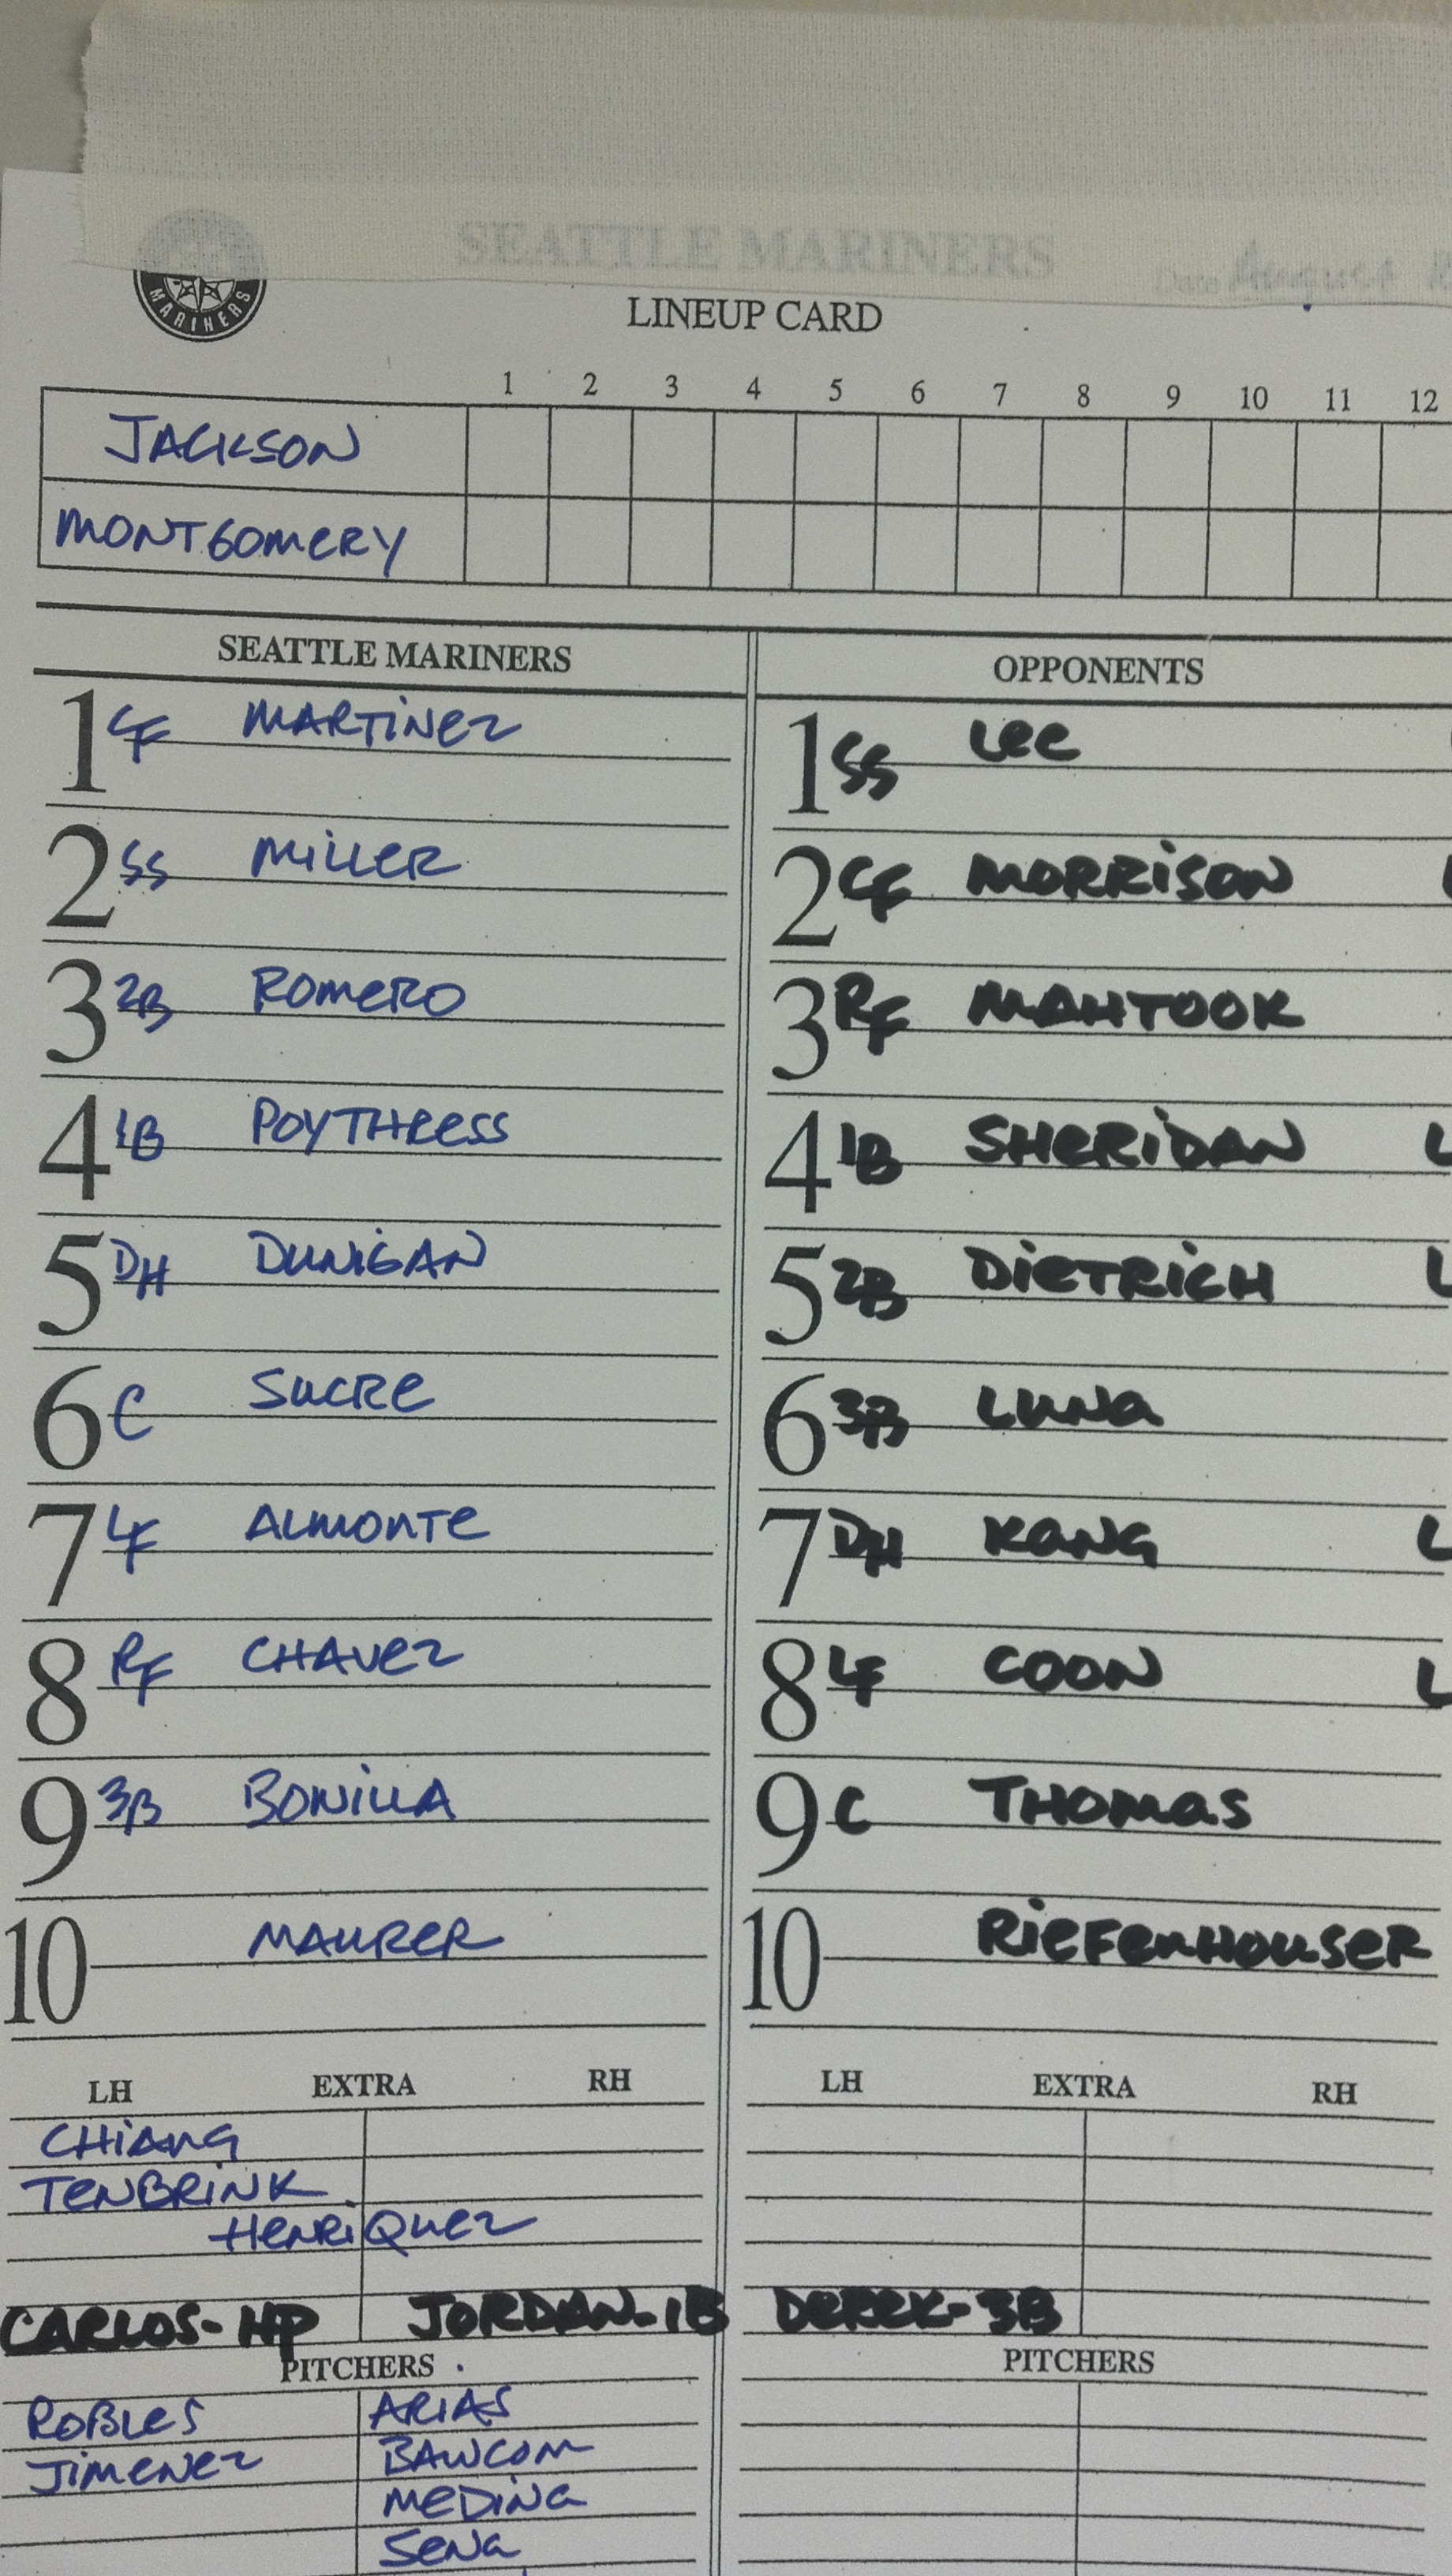 SEATTLE MARINERS
Date August
MARINERS
LINEUP CARD
1 2 3 4 5 6 7 8 9 10 11 12
JACKSON
MONTGOMERY
SEATTLE MARINERS OPPONENTS
1 CF MARTINEZ 1 SS Lee
2 SS MILLER 2 CF MORRISON
3 2B ROMERO 3 RF MAHTOOK
4 1B POYTHRESS 4 1B SHERIDAN L
5 DH DUNIGAN 5 2B DIETRICH L
6 C SUCRE 6 3B LUNA
7 LF ALMONTE 7 DH KANG L
8 RF CHAVEZ 8 LF COON L
9 3B BONILLA 9 C THOMAS
10 MAURER 10 RIEFENHOUSER
LH EXTRA RH LH EXTRA RH
CHIANG
TENBRINK
HENRIQUEZ
CARLOS-HP JORDAN-1B DEREK-3B
PITCHERS PITCHERS
ROBLES ARIAS
JIMENEZ BAWCOM
MEDINA
SENA